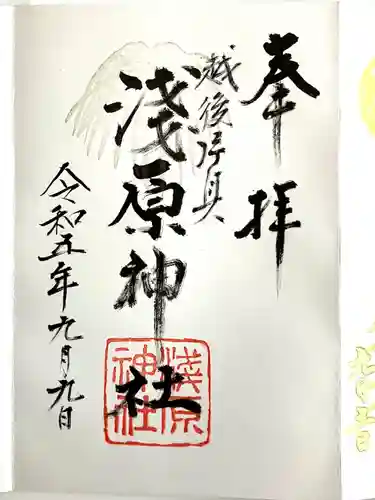 奉拝
越後片貝
淺原神社
令和五年九月九日
淺原
神社